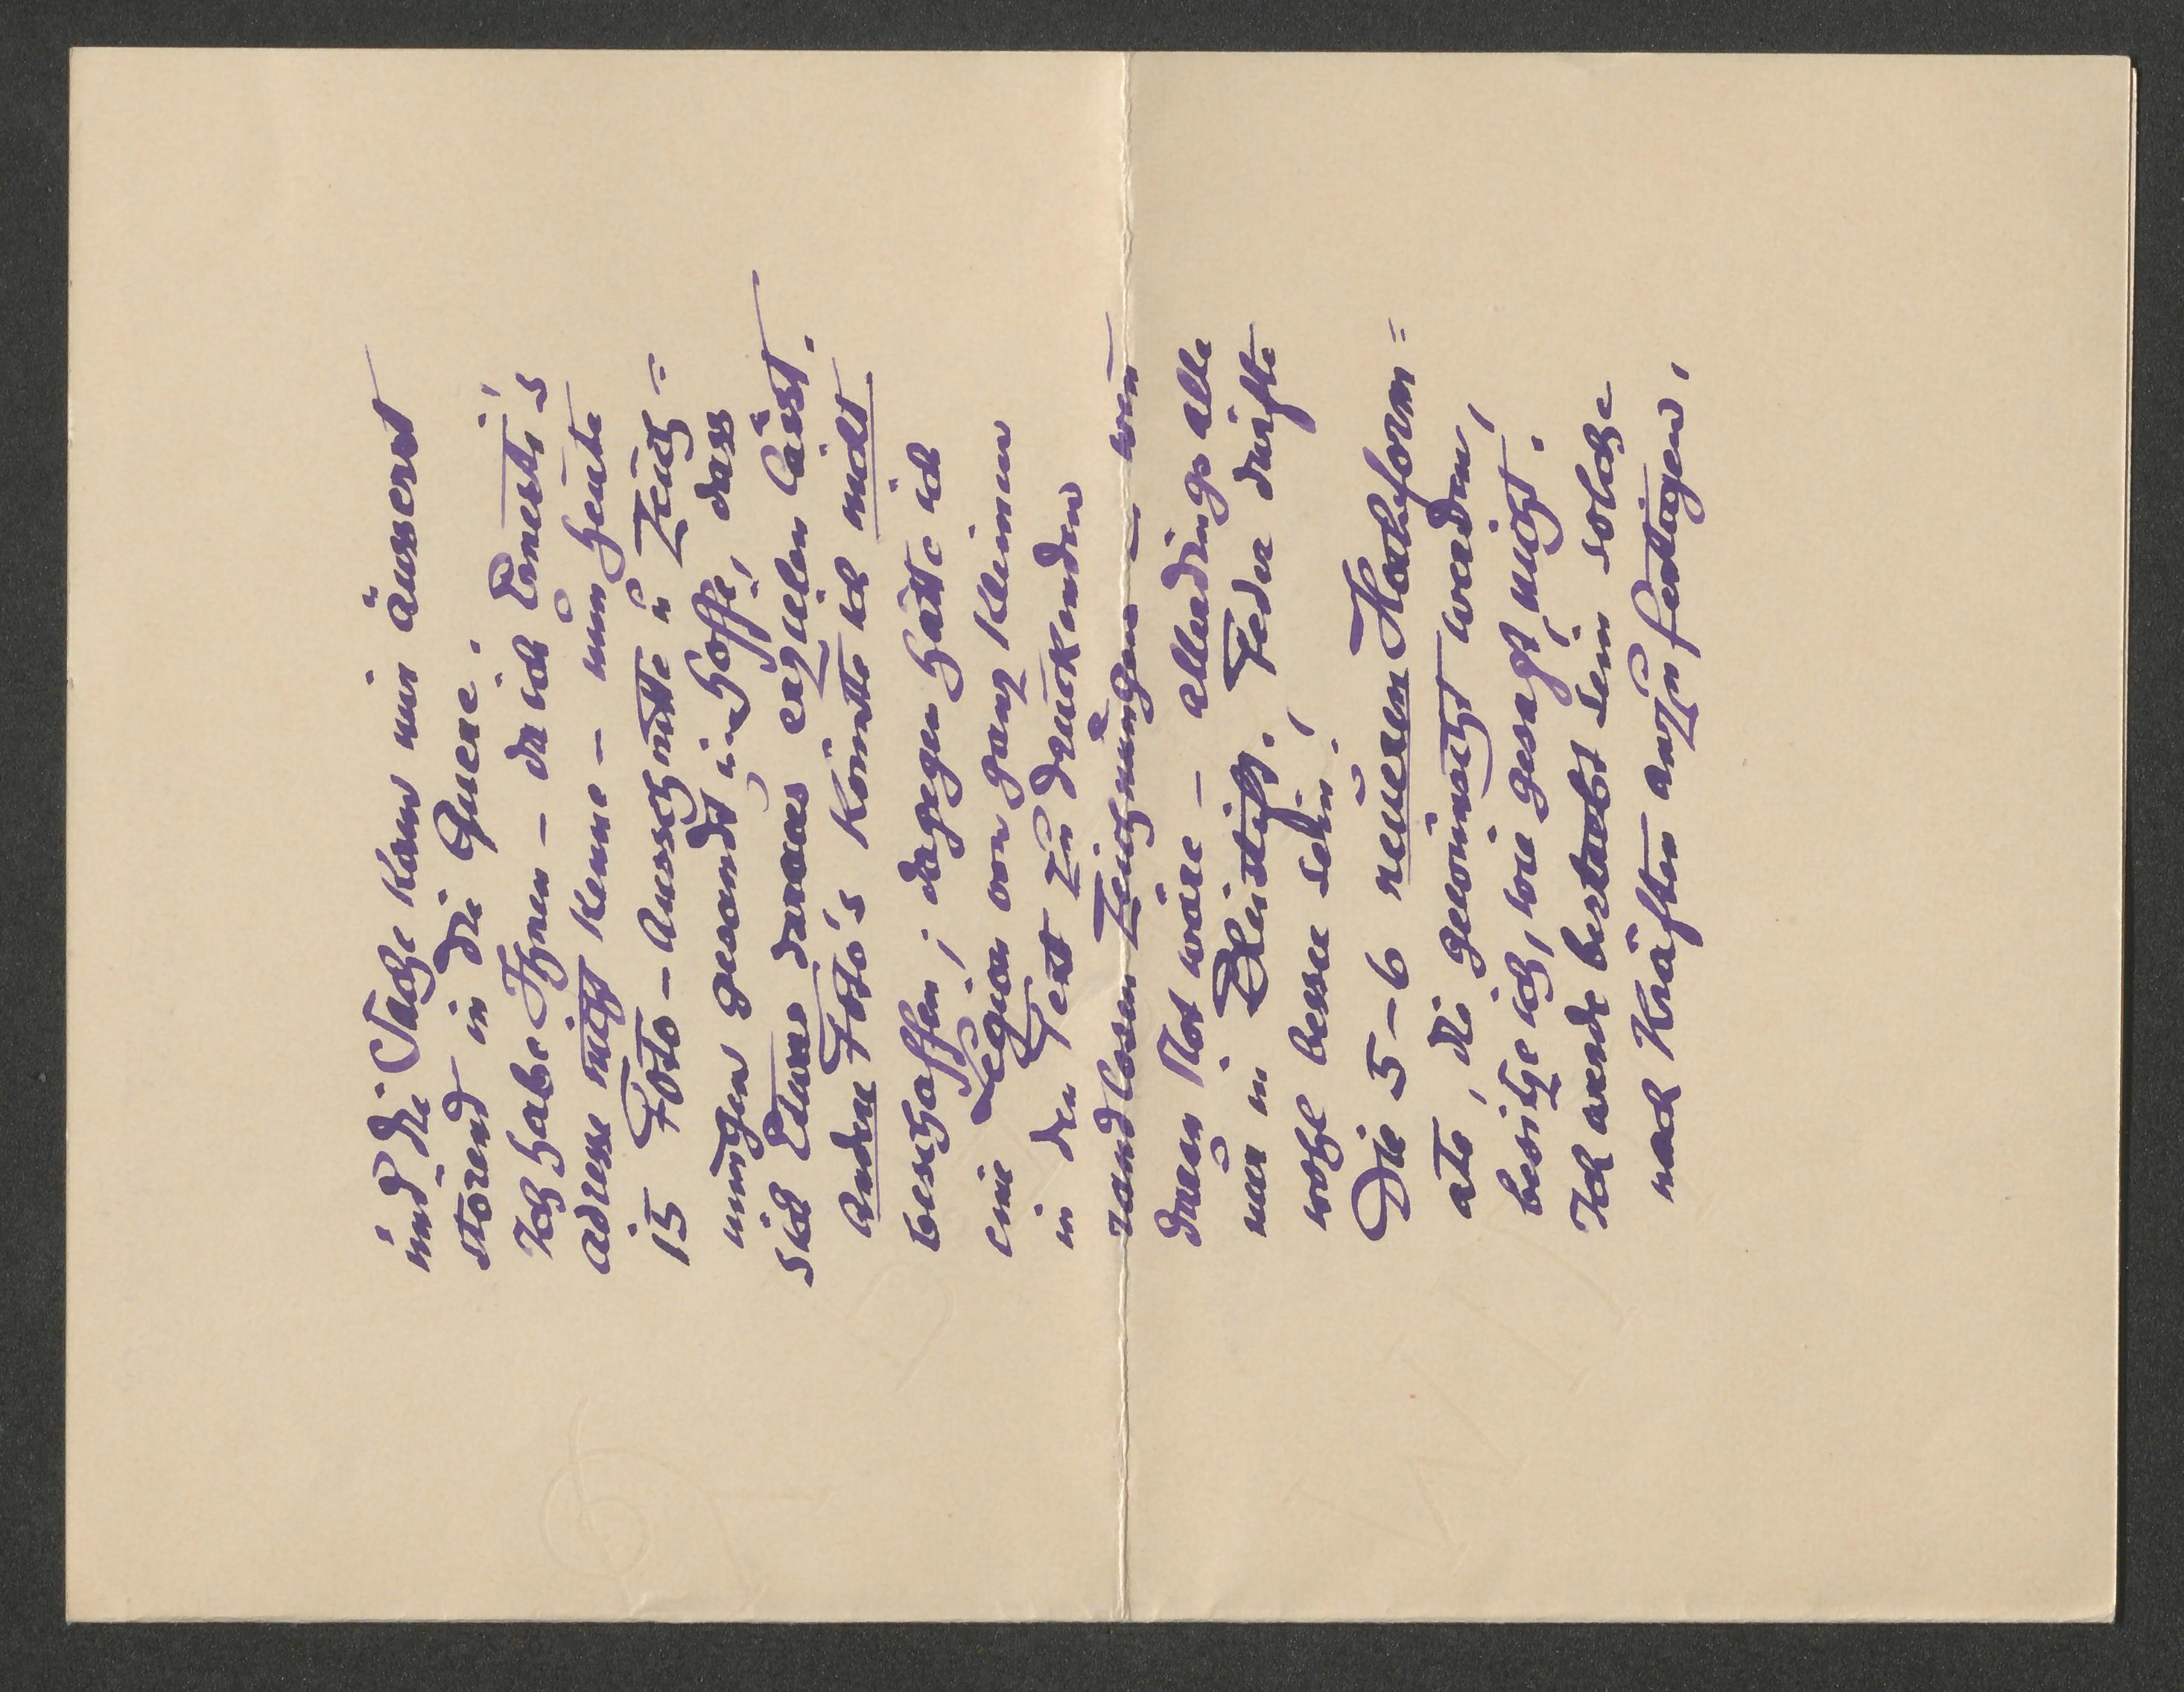 und die Sache kam mir äusserst
störend in die Quere.
Ich habe Ihnen – da ich Ernesti's
Adresse nicht kenne – nun heute
15 Foto-Ausschnitte u Zeich=
nungen gesandt u hoffe, dass
sich Etwas daraus erzielen lässt.
Andere Foto's könnte ich nicht
beschaffen; dagegen hätte ich
eine Legion von ganz kleinen
in den Text zu druckenden
randlosen Zeichnungen – wenn
daran Not wäre – allerdings alle
nur in Bleistift. Feder dürfte
wohl besser sein!
Die 5–6 neueren Hochform=
ate, die gewünscht werden,
besitze ich, wie gesagt, nicht.
Ich werde bestrebt sein solche
nach Kräften anzufertigen,